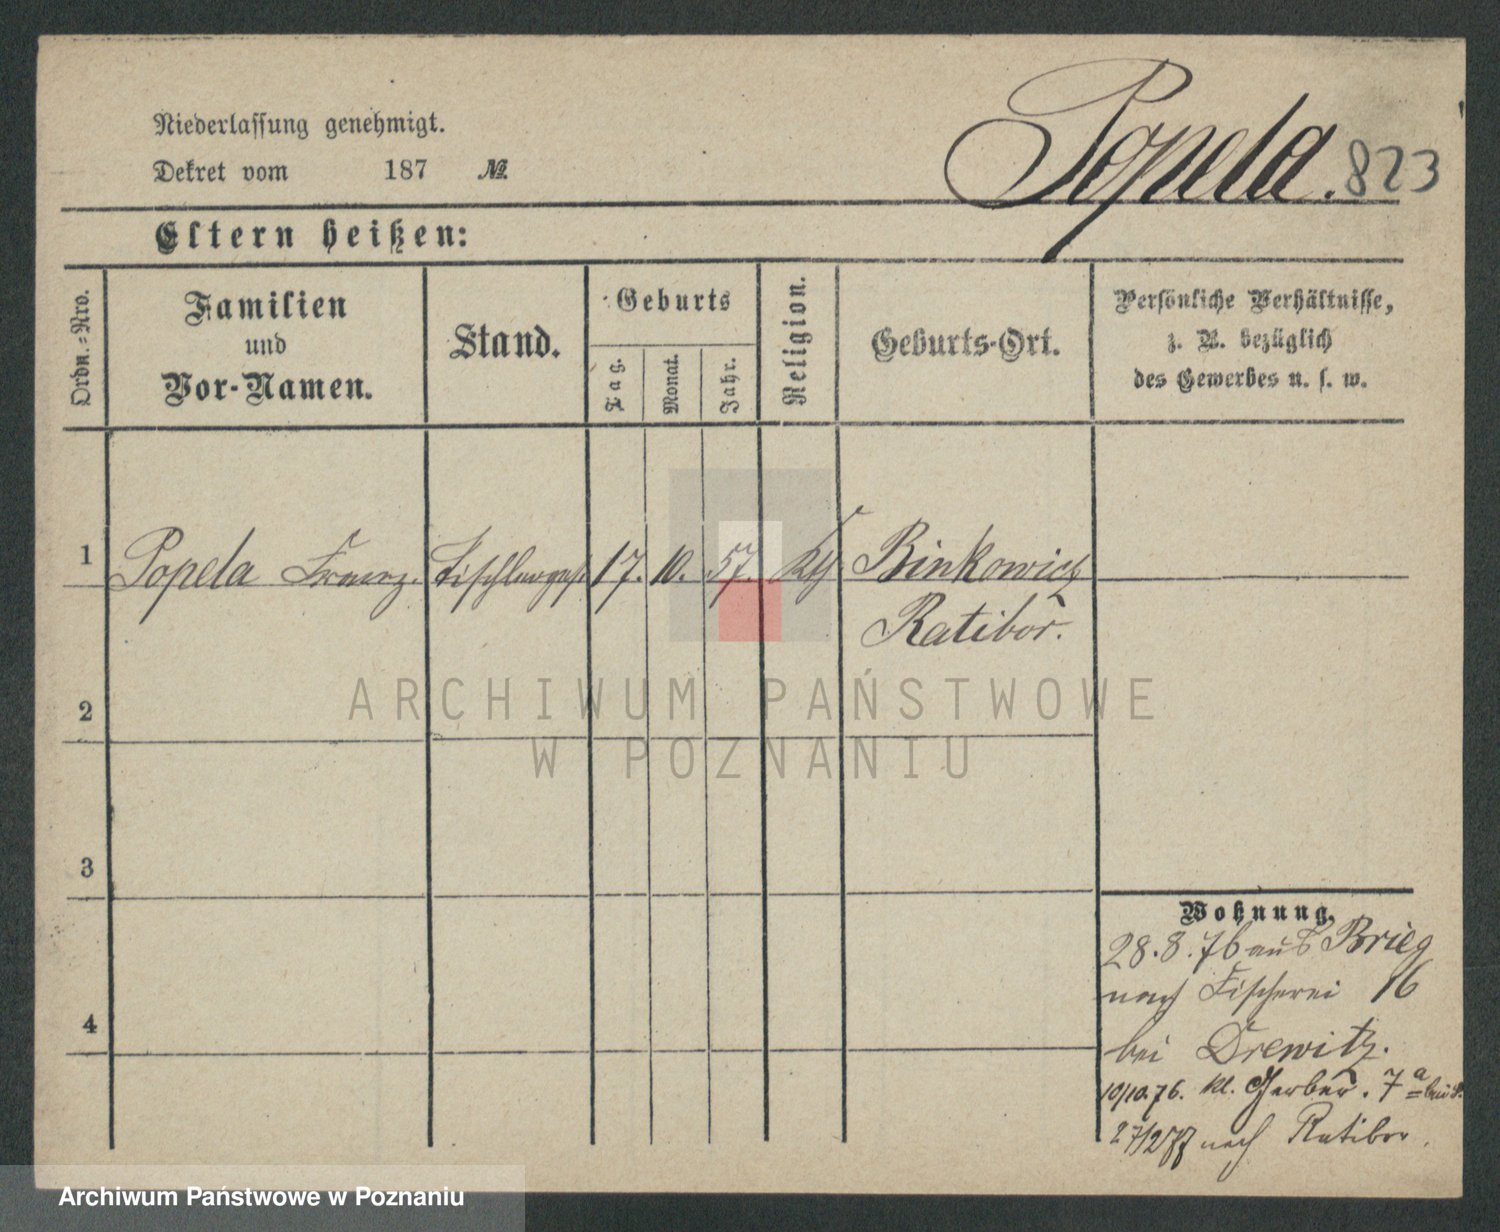 Niederlassung genehmigt.
Dekret vom 187 №
Popela. 823
Eltern heißen:
Ordn.=Nro.
Familien
und
Vor-Namen.
Stand.
Geburts
Tag.
Monat.
Jahr.
Religion.
Geburts-Ort.
Persönliche Verhältnisse,
z. B. bezüglich
des Gewerbes u. s. w.
1 Popela Franz. Tischlerges. 17. 10. 57. Kth. Binkowicz
Ratibor.
2
3
4
Wohnung.
28.8.76 aus Brieg
nach Fischerei 16
bei Drewitz.
10/10.76. kl. Gerber. 7a bei
27/2 77 nach Ratibor.
ARCHIWUM PAŃSTWOWE
W POZNANIU
Archiwum Państwowe w Poznaniu